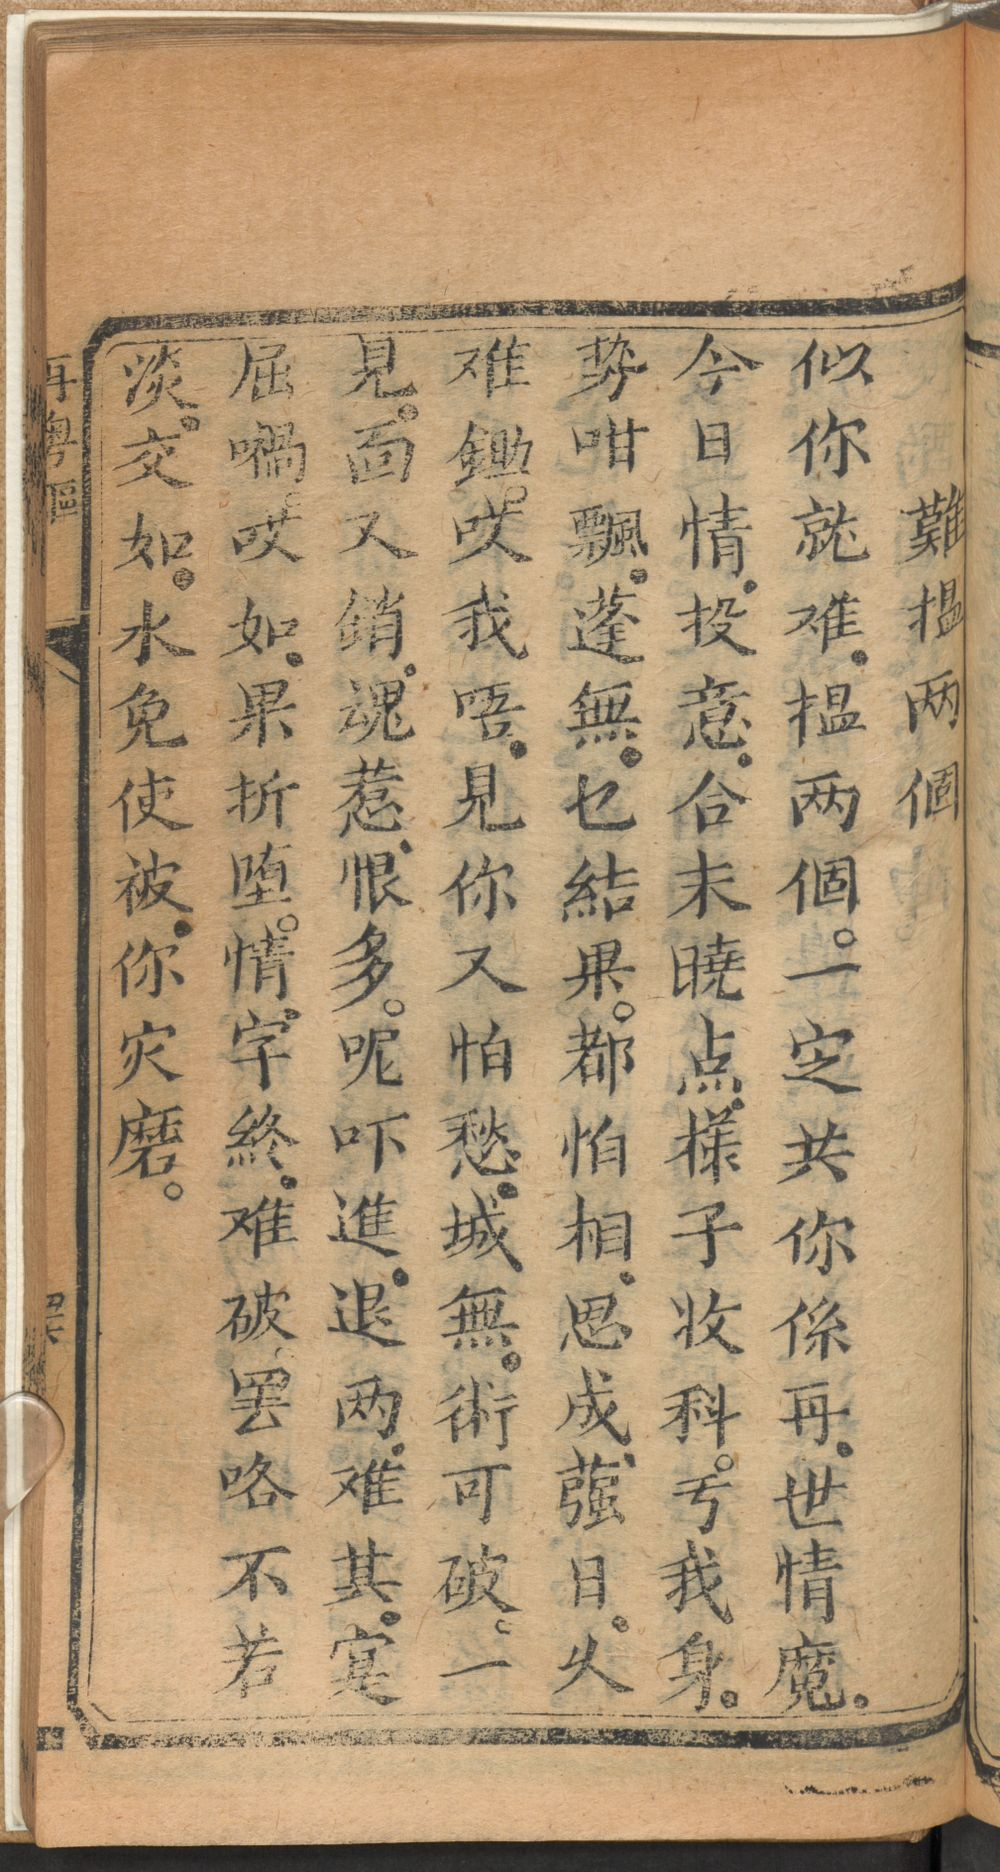 難揾两個
似你就难、揾两個。一定共你係再、世情魔、
今日情、投意、合未曉点、樣子收科。亏我身、
势咁飄、蓬無、乜結果。都怕相、思成、蔃日、久
难鋤。哎我唔、見你又怕愁、城、無、術可破。一
見。面又銷、魂惹、恨多。呢吓進、退两、难其、寔
屈喎。哎如、果折堕。情、字終、难破罢咯不若
淡、交如、水免使被、你灾磨。
再粤謳
四六